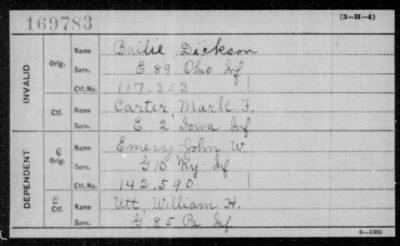 169783
(3-H-4)
INVALID
Orig.
Name Bailie Dickson
Serv. E 89 Ohio Inf
Ctf. No. 117,353
Ctf.
Name Carter, Mark F.
Serv. E 2 Iowa Inf
DEPENDENT
Orig.
Name Emery John W.
Serv. G 10 Ky Inf
Ctf. No. 142,590
Ctf.
Name Utt, William H.
Serv. G 85 Pa Inf